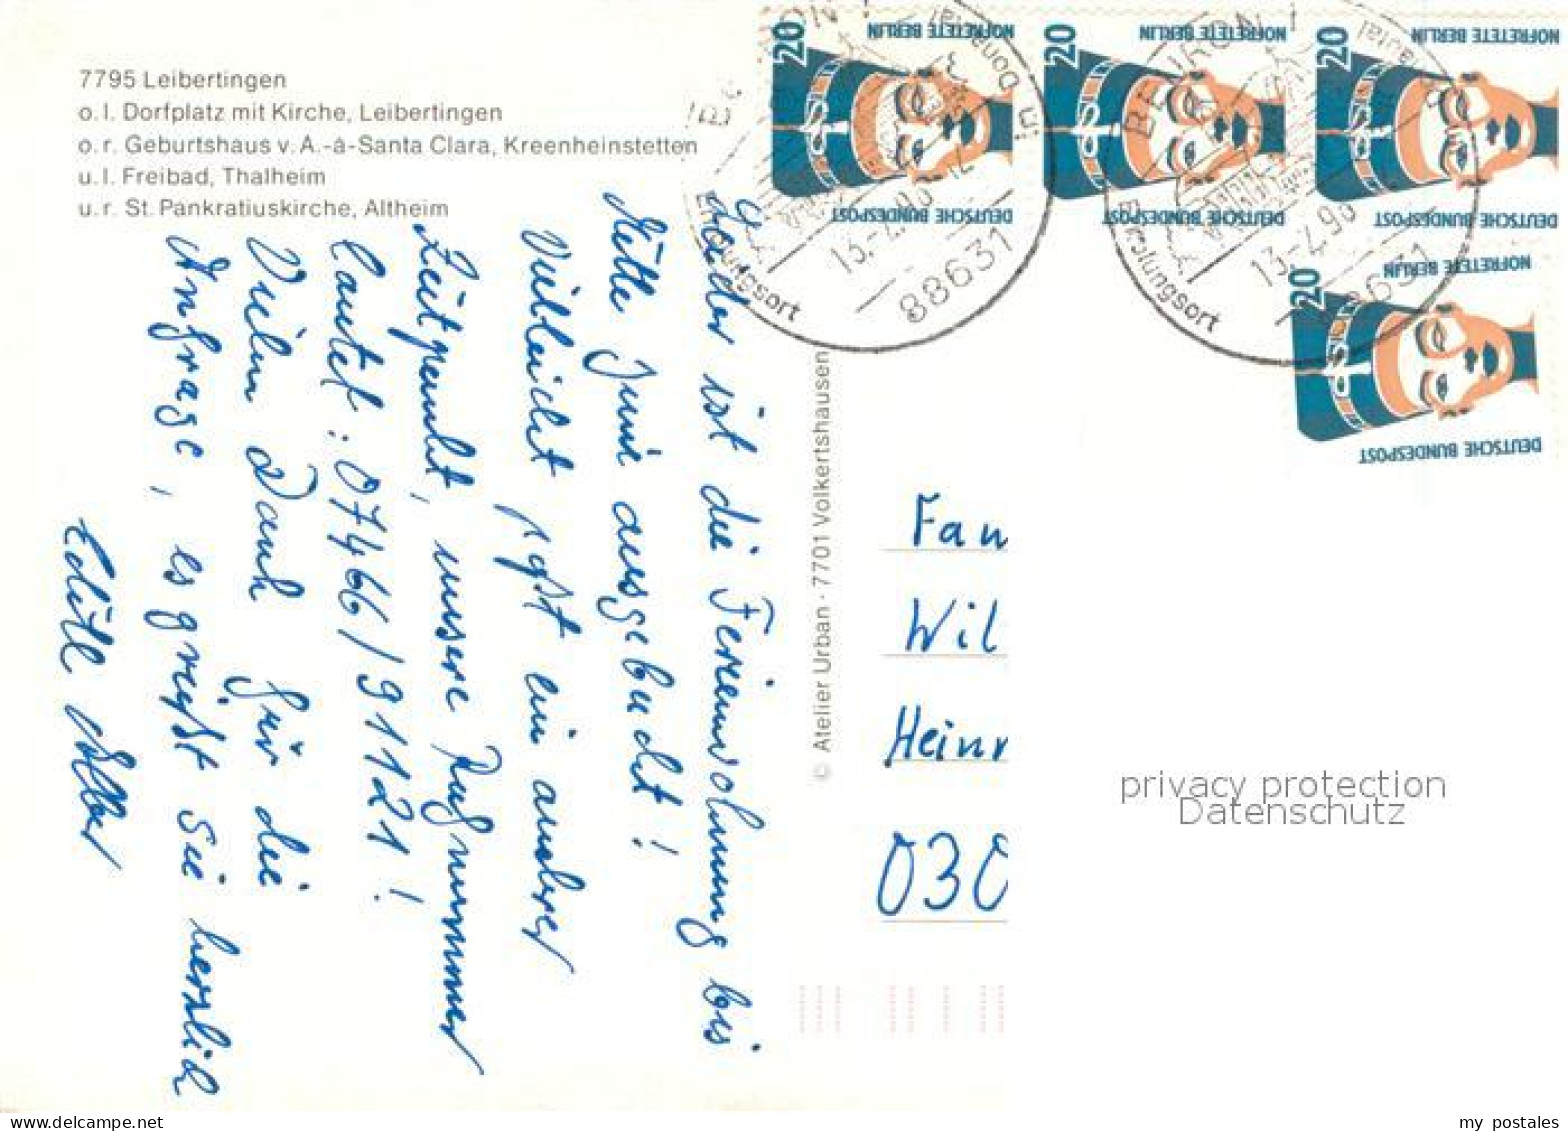 7795 Leibertingen
o. l. Dorfplatz mit Kirche, Leibertingen
o. r. Geburtshaus v. A.-à-Santa Clara, Kreenheinstetten
u. l. Freibad, Thalheim
u. r. St. Pankratiuskirche, Altheim
Leider ist die Ferienwohnung bis
Mitte Juni ausgebucht!
Vielleicht paßt ein anderer
Zeitpunkt, unsere Rufnummer
lautet: 07466/91121!
Vielen Dank für die
Anfrage, es grüßt Sie herzlich
Edith
© Atelier Urban · 7701 Volkertshausen
20
NOFRETETE BERLIN
DEUTSCHE BUNDESPOST
20
NOFRETETE BERLIN
DEUTSCHE BUNDESPOST
20
NOFRETETE BERLIN
DEUTSCHE BUNDESPOST
20
NOFRETETE BERLIN
DEUTSCHE BUNDESPOST
Erholungsort
88631
BEURON 1
Erholungsort
Fam
Wil
Heinr
030
privacy protection
Datenschutz
my postales